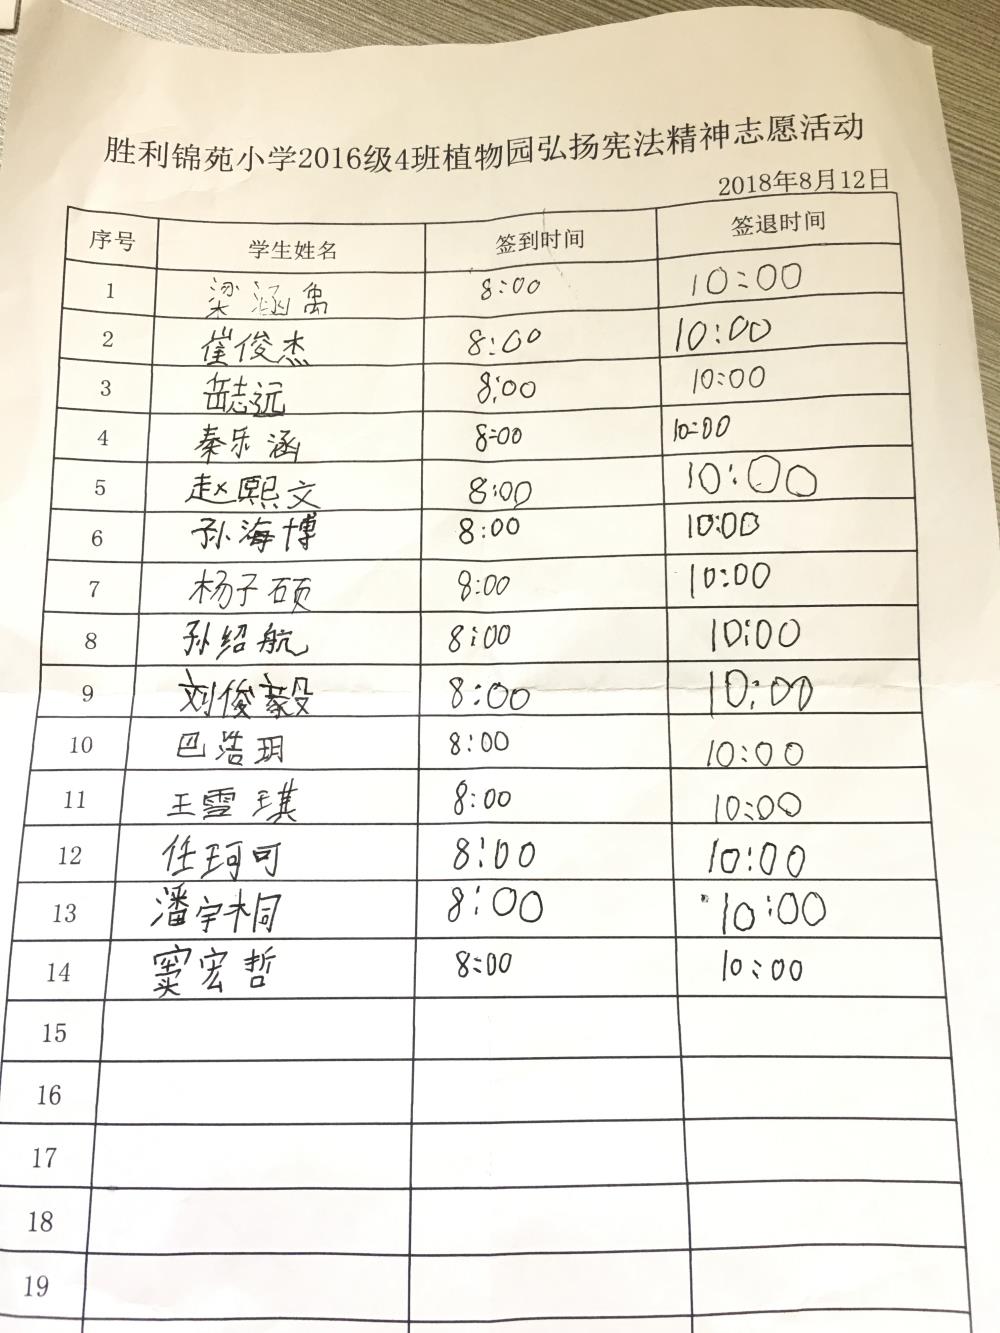 胜利锦苑小学2016级4班植物园弘扬宪法精神志愿活动
2018年8月12日
序号 学生姓名 签到时间 签退时间
1 梁涵禹 8:00 10:00
2 崔俊杰 8:00 10:00
3 岳志远 8:00 10:00
4 秦乐涵 8:00 10:00
5 赵熙文 8:00 10:00
6 孙海博 8:00 10:00
7 杨子硕 8:00 10:00
8 孙绍航 8:00 10:00
9 刘俊毅 8:00 10:00
10 巴浩玥 8:00 10:00
11 王雪琪 8:00 10:00
12 任珂可 8:00 10:00
13 潘宇桐 8:00 10:00
14 窦宏哲 8:00 10:00
15
16
17
18
19